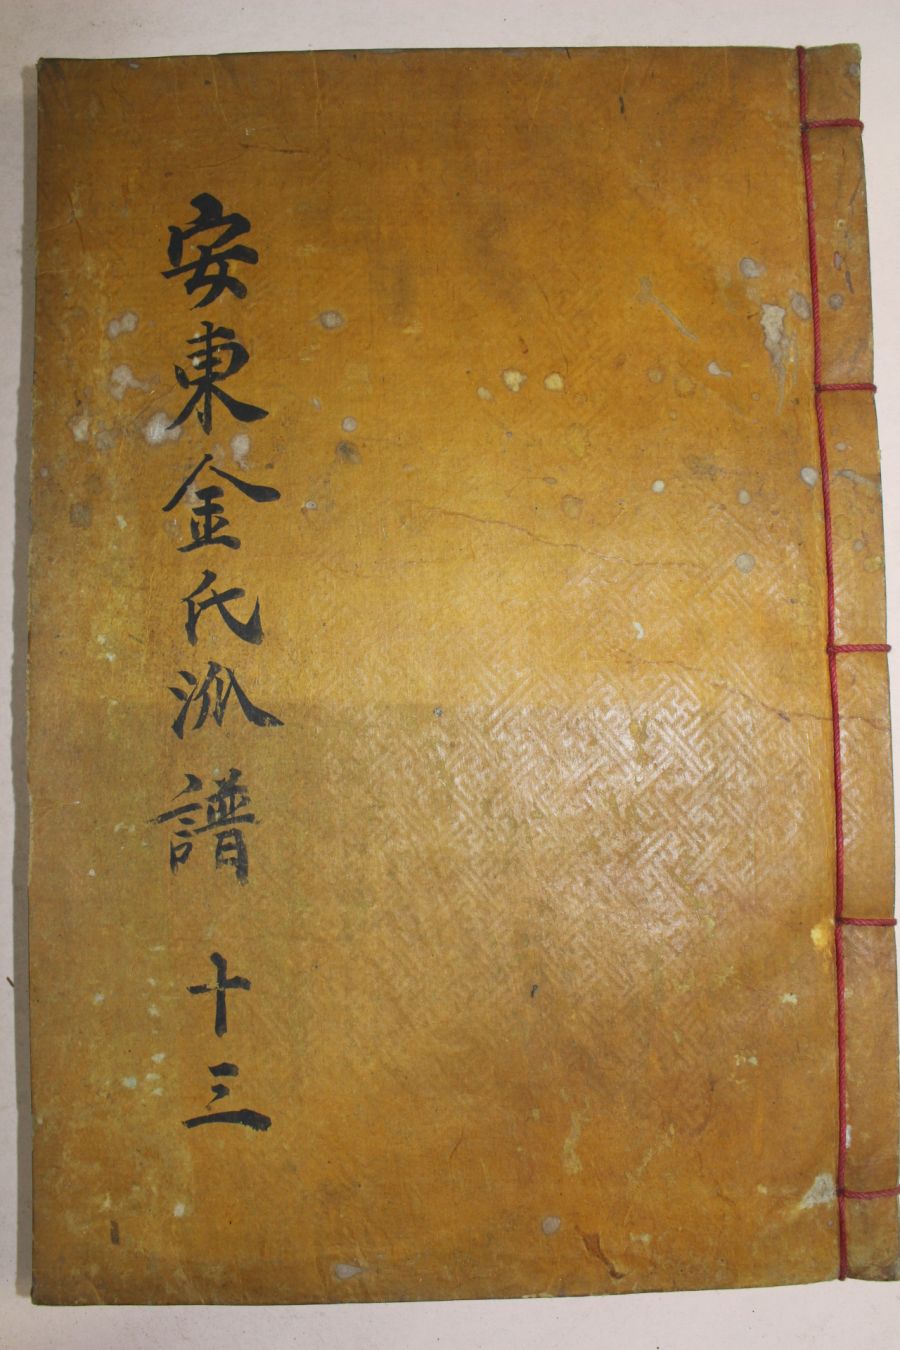 安東金氏派譜 十三